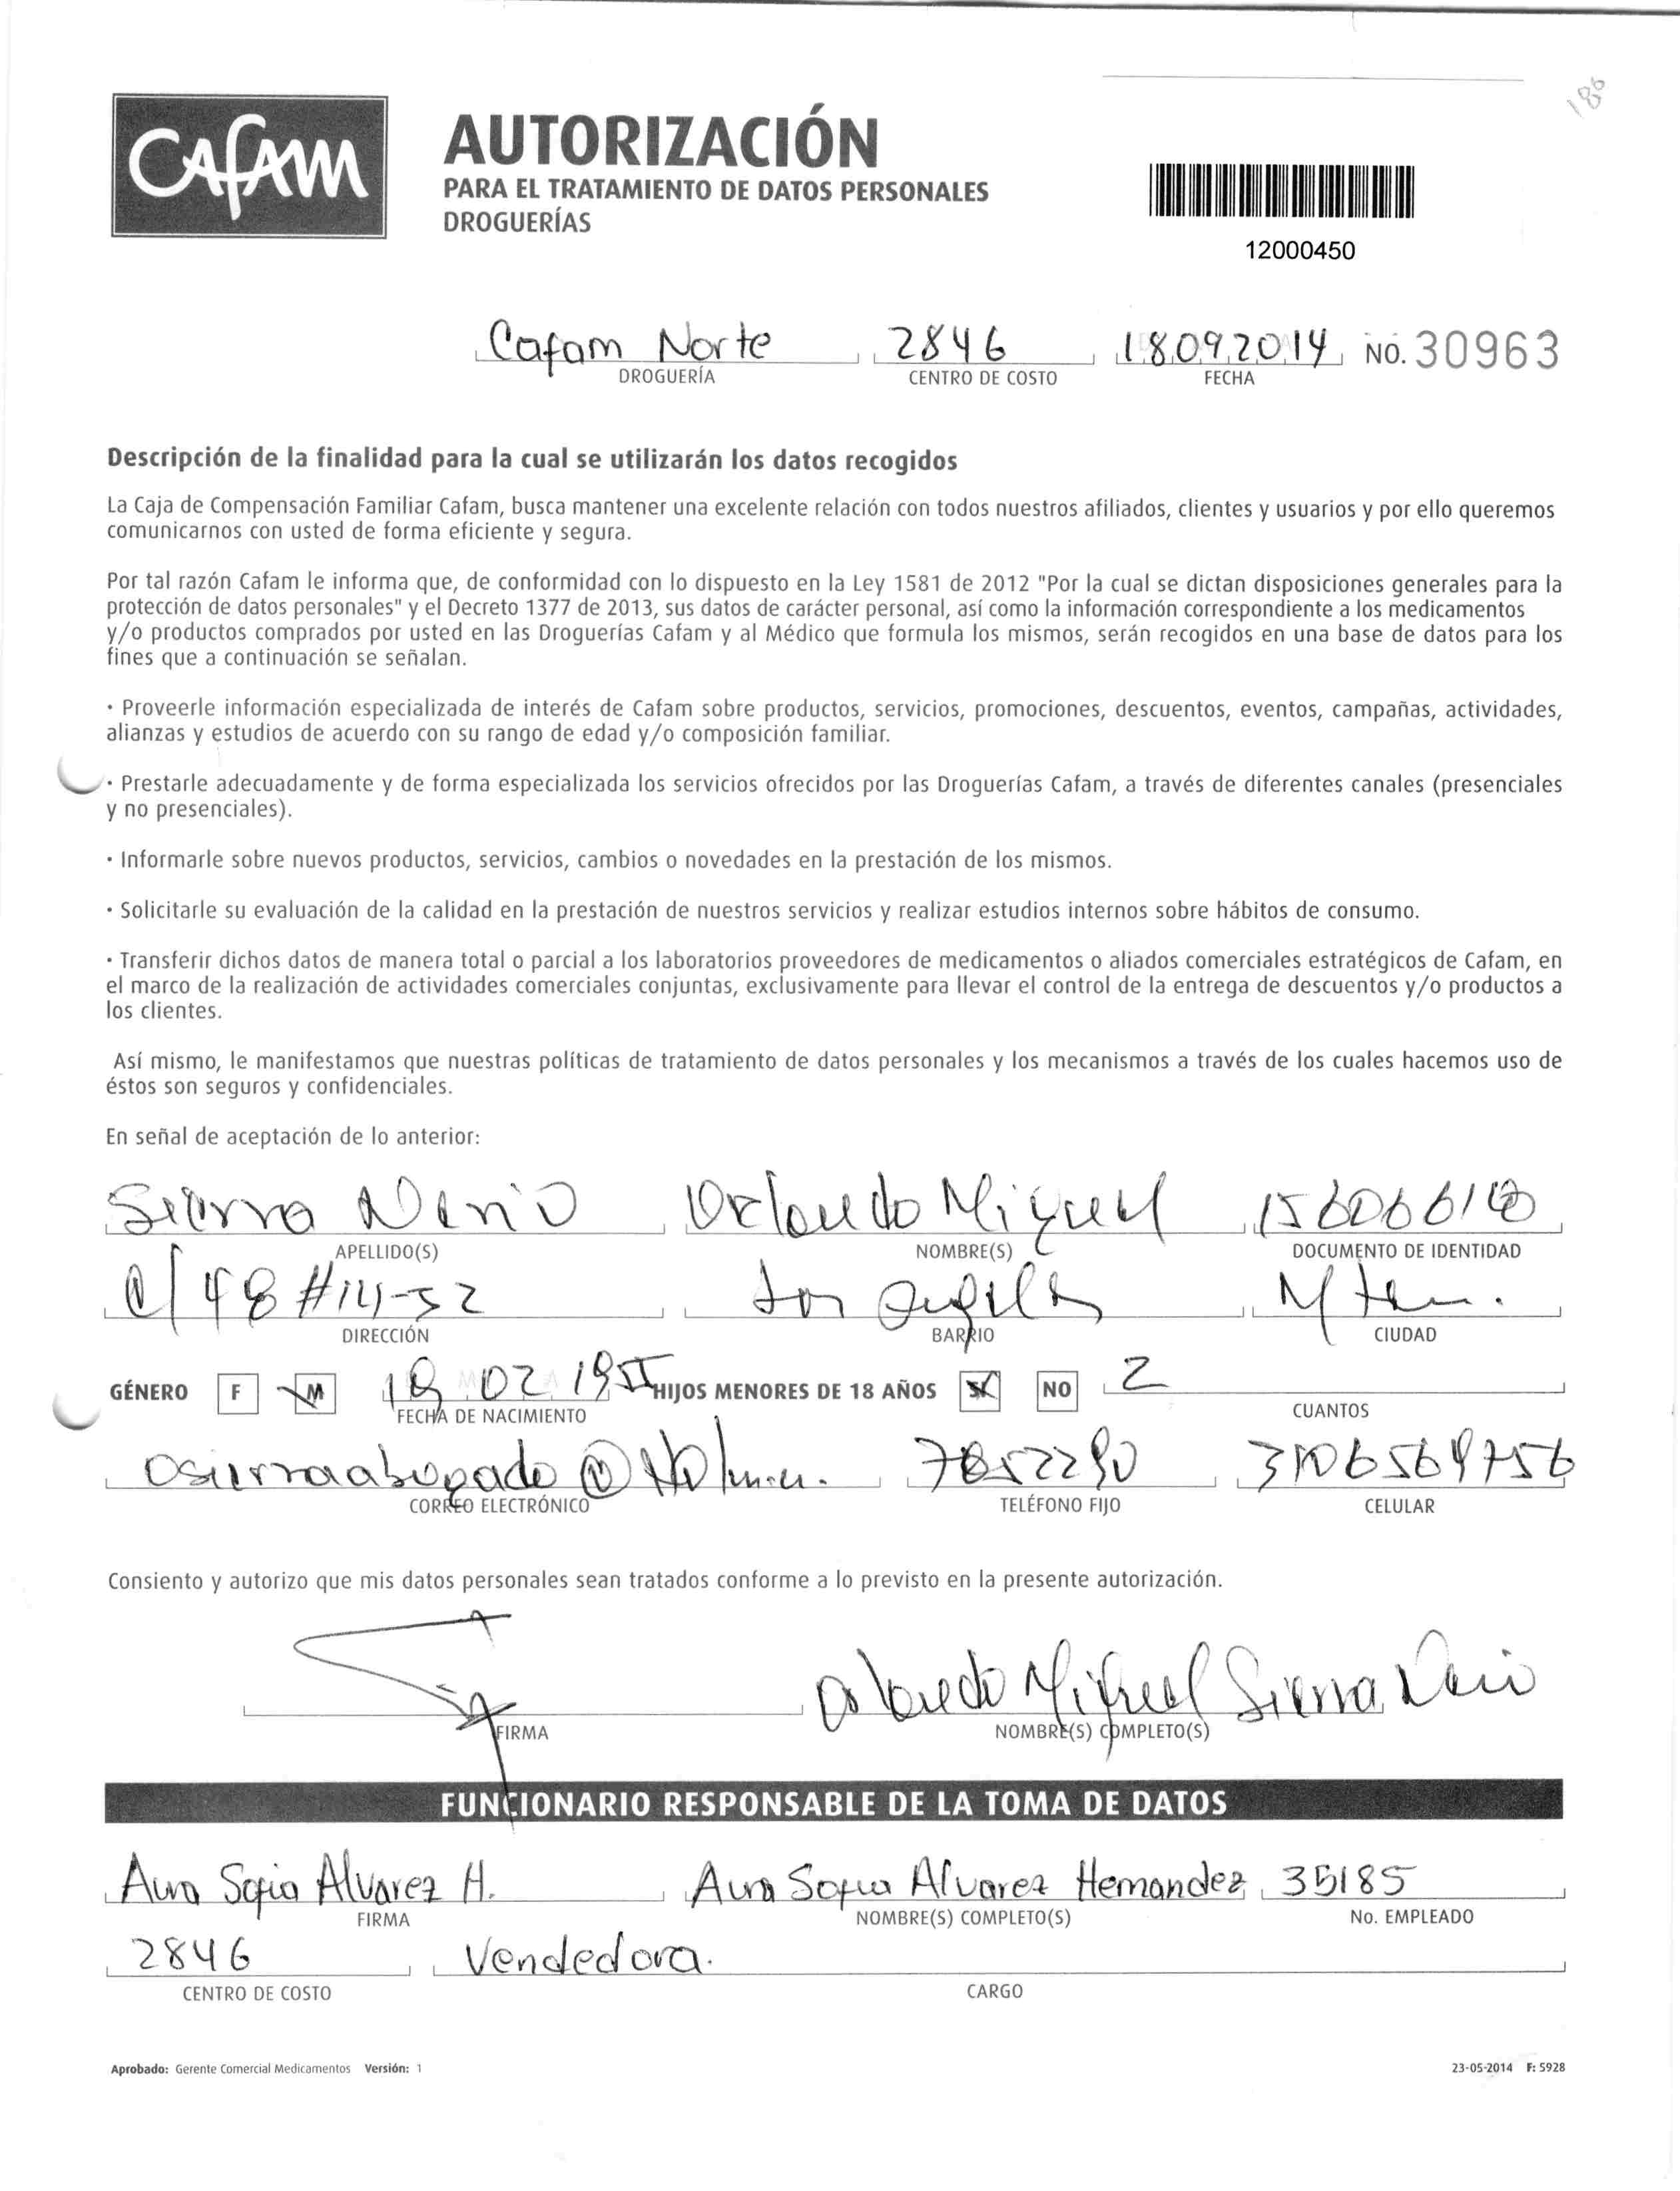 186
CAfAM
AUTORIZACIÓN
PARA EL TRATAMIENTO DE DATOS PERSONALES
DROGUERÍAS
12000450
Cafam Norte 2846 18092014 NO. 30963
DROGUERÍA CENTRO DE COSTO FECHA
Descripción de la finalidad para la cual se utilizarán los datos recogidos
La Caja de Compensación Familiar Cafam, busca mantener una excelente relación con todos nuestros afiliados, clientes y usuarios y por ello queremos
comunicarnos con usted de forma eficiente y segura.
Por tal razón Cafam le informa que, de conformidad con lo dispuesto en la Ley 1581 de 2012 "Por la cual se dictan disposiciones generales para la
protección de datos personales" y el Decreto 1377 de 2013, sus datos de carácter personal, así como la información correspondiente a los medicamentos
y/o productos comprados por usted en las Droguerías Cafam y al Médico que formula los mismos, serán recogidos en una base de datos para los
fines que a continuación se señalan.
· Proveerle información especializada de interés de Cafam sobre productos, servicios, promociones, descuentos, eventos, campañas, actividades,
alianzas y estudios de acuerdo con su rango de edad y/o composición familiar.
· Prestarle adecuadamente y de forma especializada los servicios ofrecidos por las Droguerías Cafam, a través de diferentes canales (presenciales
y no presenciales).
· Informarle sobre nuevos productos, servicios, cambios o novedades en la prestación de los mismos.
· Solicitarle su evaluación de la calidad en la prestación de nuestros servicios y realizar estudios internos sobre hábitos de consumo.
· Transferir dichos datos de manera total o parcial a los laboratorios proveedores de medicamentos o aliados comerciales estratégicos de Cafam, en
el marco de la realización de actividades comerciales conjuntas, exclusivamente para llevar el control de la entrega de descuentos y/o productos a
los clientes.
Así mismo, le manifestamos que nuestras políticas de tratamiento de datos personales y los mecanismos a través de los cuales hacemos uso de
éstos son seguros y confidenciales.
En señal de aceptación de lo anterior:
Sierra Orlando Miguel
APELLIDO(S) NOMBRE(S) DOCUMENTO DE IDENTIDAD
48 #14-52
DIRECCIÓN BARRIO CIUDAD
GÉNERO F M 02 HIJOS MENORES DE 18 AÑOS SI NO 2
FECHA DE NACIMIENTO CUANTOS
CORREO ELECTRÓNICO TELÉFONO FIJO CELULAR
Consiento y autorizo que mis datos personales sean tratados conforme a lo previsto en la presente autorización.
Orlando Miguel Sierra
FIRMA NOMBRE(S) COMPLETO(S)
FUNCIONARIO RESPONSABLE DE LA TOMA DE DATOS
Aura Sofia Alvarez H. Aura Sofia Alvarez Hernandez 35185
FIRMA NOMBRE(S) COMPLETO(S) No. EMPLEADO
2846 Vendedora.
CENTRO DE COSTO CARGO
Aprobado: Gerente Comercial Medicamentos Versión: 1 23-05-2014 F: 5928